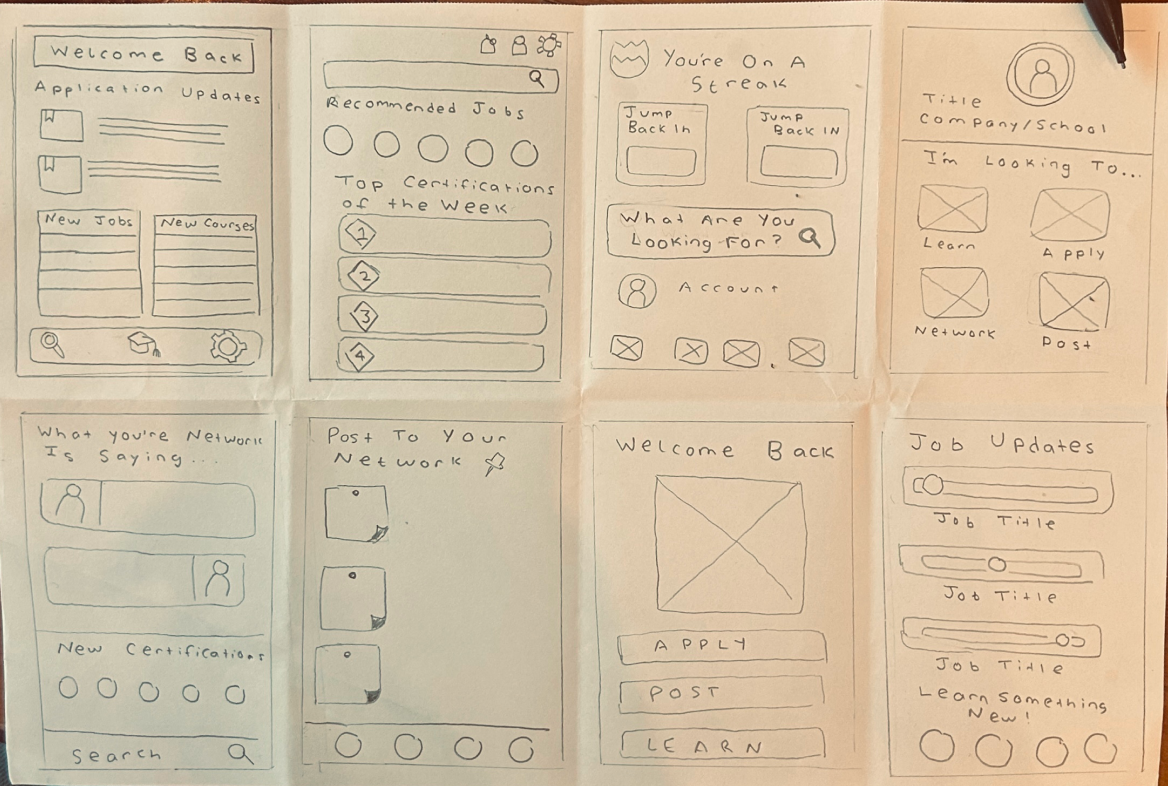 Welcome Back
Application Updates
New Jobs
New Courses
Recommended Jobs
Top Certifications
of the Week
1
2
3
4
You're On A
Streak
Jump
Back In
Jump
Back IN
What Are You
Looking For?
Account
Title
Company/School
I'm Looking To...
Learn
Apply
Network
Post
What you're Network
Is Saying...
New Certifications
Search
Post To Your
Network
Welcome Back
APPLY
POST
LEARN
Job Updates
Job Title
Job Title
Job Title
Learn Something
New!